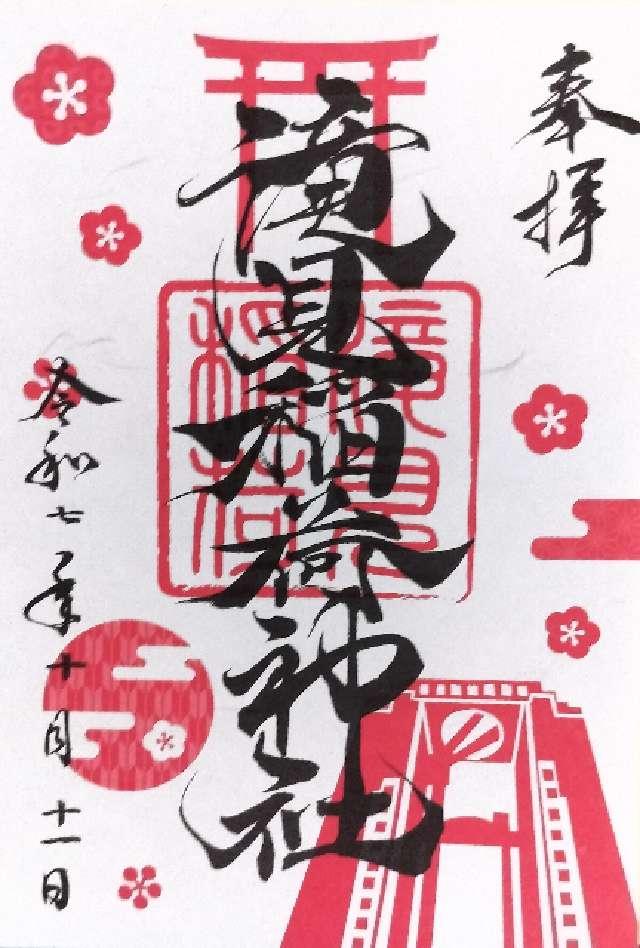 奉拝
滝見稲荷神社
滝見
稲荷
令和七年十月十一日